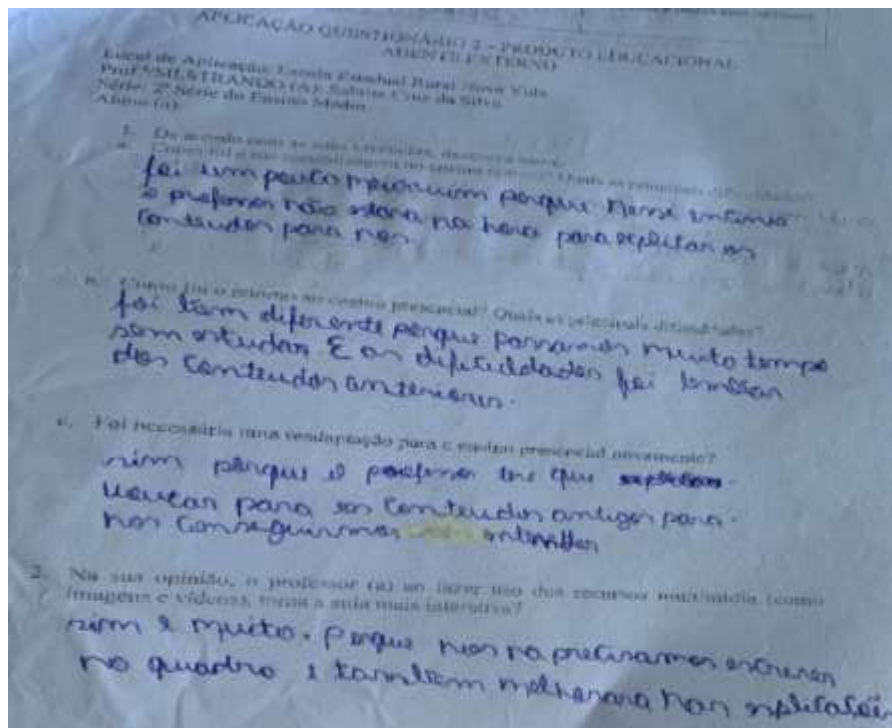 APLICAÇÃO QUESTIONÁRIO 2 - PRODUTO EDUCACIONAL
AGENTE EXTERNO
Local de Aplicação: Escola Estadual Rural Nova Vida
Prof.ª MESTRANDO (A): Cruz da Silva
Série: 2ª Série do Ensino Médio
Aluno (a):
1. De acordo com as suas vivências,
foi um pouco porque nesse
o professor não estava na hora para explicar os
conteudos para nos.
Como foi o retorno ao ensino presencial? Quais as principais dificuldades?
foi bem diferente porque passamos muito tempo
sem estudar E as dificuldades foi lembrar
dos conteudos anteriores.
c. Foi necessária uma readaptação para o ensino presencial novamente?
sim porque o professor teve que
voutar para os conteudos antigos para
nos conseguirmos entender
2. Na sua opinião, o professor (a) ao fazer uso dos recursos multimídia (como
imagens e vídeos), torna a aula mais interativa?
sim e muito. Porque nos precisamos escrever
no quadro e também nas